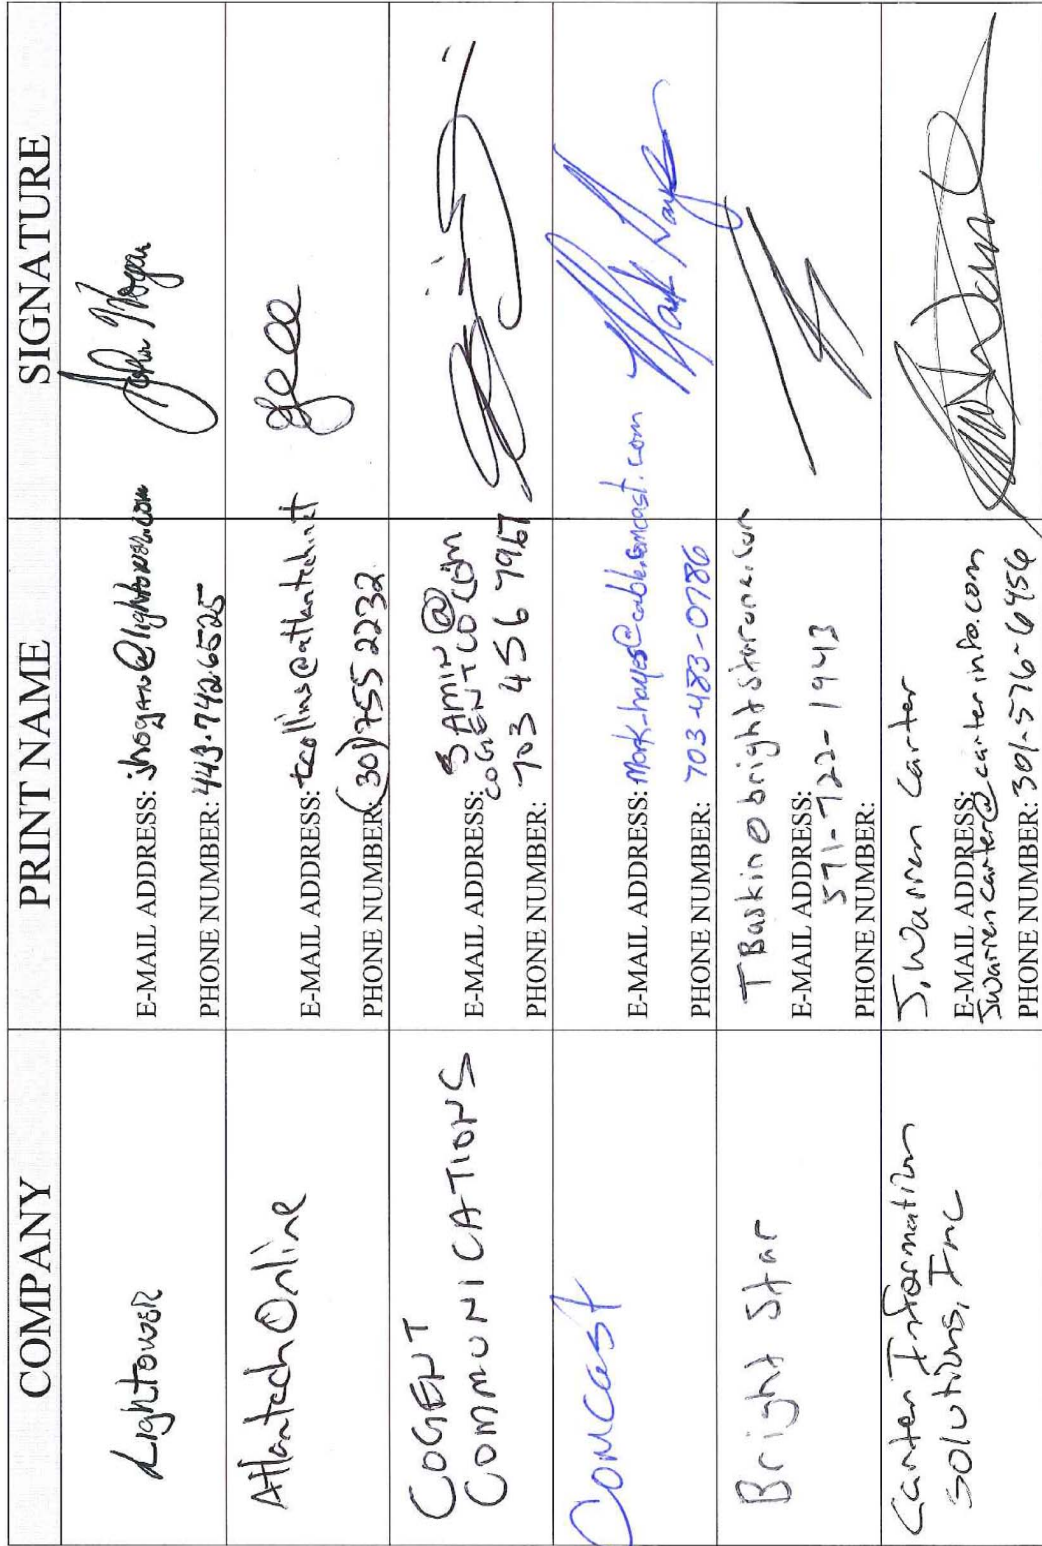 COMPANY PRINT NAME SIGNATURE
Lightower
E-MAIL ADDRESS: jhogan@lightower.com
PHONE NUMBER: 443.742.6525
John Hogan
Atlantech Online
E-MAIL ADDRESS: tcollins@atlantech.net
PHONE NUMBER: (301) 755 2232
COGENT
COMMUNICATIONS
E-MAIL ADDRESS: SAMIN@
COGENTCO.COM
PHONE NUMBER: 703 456 7967
Comcast
E-MAIL ADDRESS: Mark-hayes@cable.comcast.com
PHONE NUMBER: 703-483-0786
Mark Hayes
Bright Star
TBaskin@brightstarone.com
E-MAIL ADDRESS:
571-722-1943
PHONE NUMBER:
Carter Information
Solutions, Inc
J. Warren Carter
E-MAIL ADDRESS:
Jwarrencarter@carterinfo.com
PHONE NUMBER: 301-576-6456